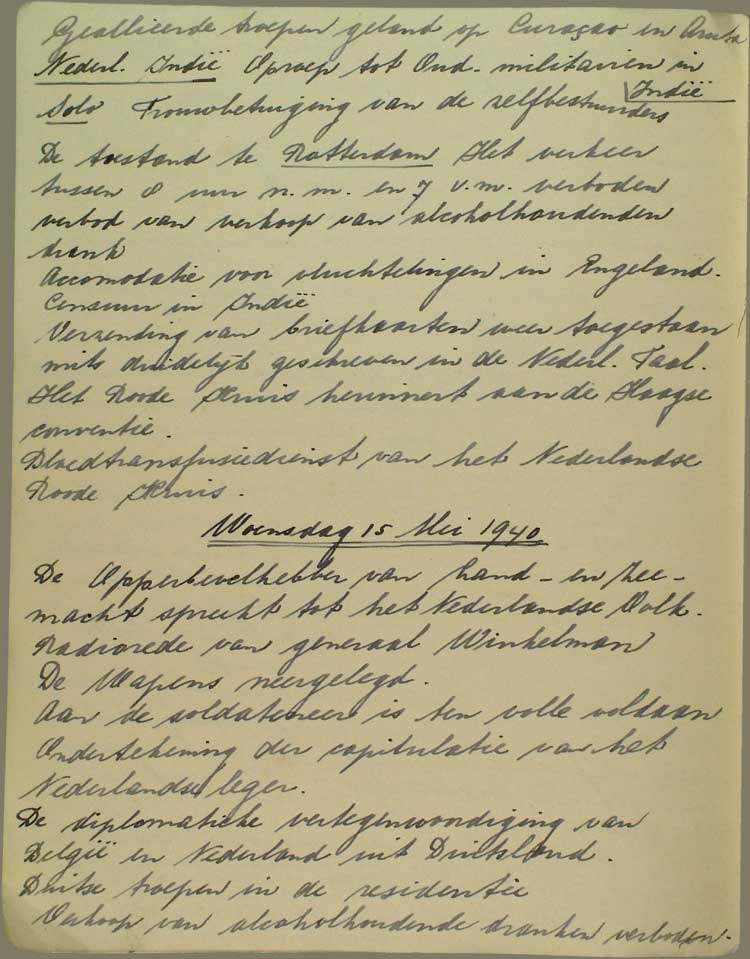 Geallieerde troepen geland op Curaçao en Aruba
Nederl. Indië Oproep tot Oud-militairen in
Indië
Solo Trouwbetuiging van de zelfbestuurders
De toestand te Rotterdam Het verkeer
tussen 8 uur n.m. en 7 v.m. verboden
verbod van verkoop van alcoholhoudenden
drank
Accomodatie voor vluchtelingen in Engeland.
Censuur in Indië
Verzending van briefkaarten weer toegestaan
mits duidelijk geschreven in de Nederl. Taal.
Het Roode Kruis herinnert aan de Haagse
conventie.
Bloedtransfusiedienst van het Nederlandse
Roode Kruis.
Woensdag 15 Mei 1940
De Opperbevelhebber van Land- en Zee-
macht spreekt tot het Nederlandse Volk.
Radiorede van generaal Winkelman
De Wapens neergelegd.
Aan de soldateneer is ten volle voldaan
Ondertekening der capitulatie van het
Nederlandse leger.
De diplomatieke vertegenwoordiging van
België en Nederland uit Duitsland.
Duitse troepen in de residentie
Verkoop van alcoholhoudende dranken verboden.